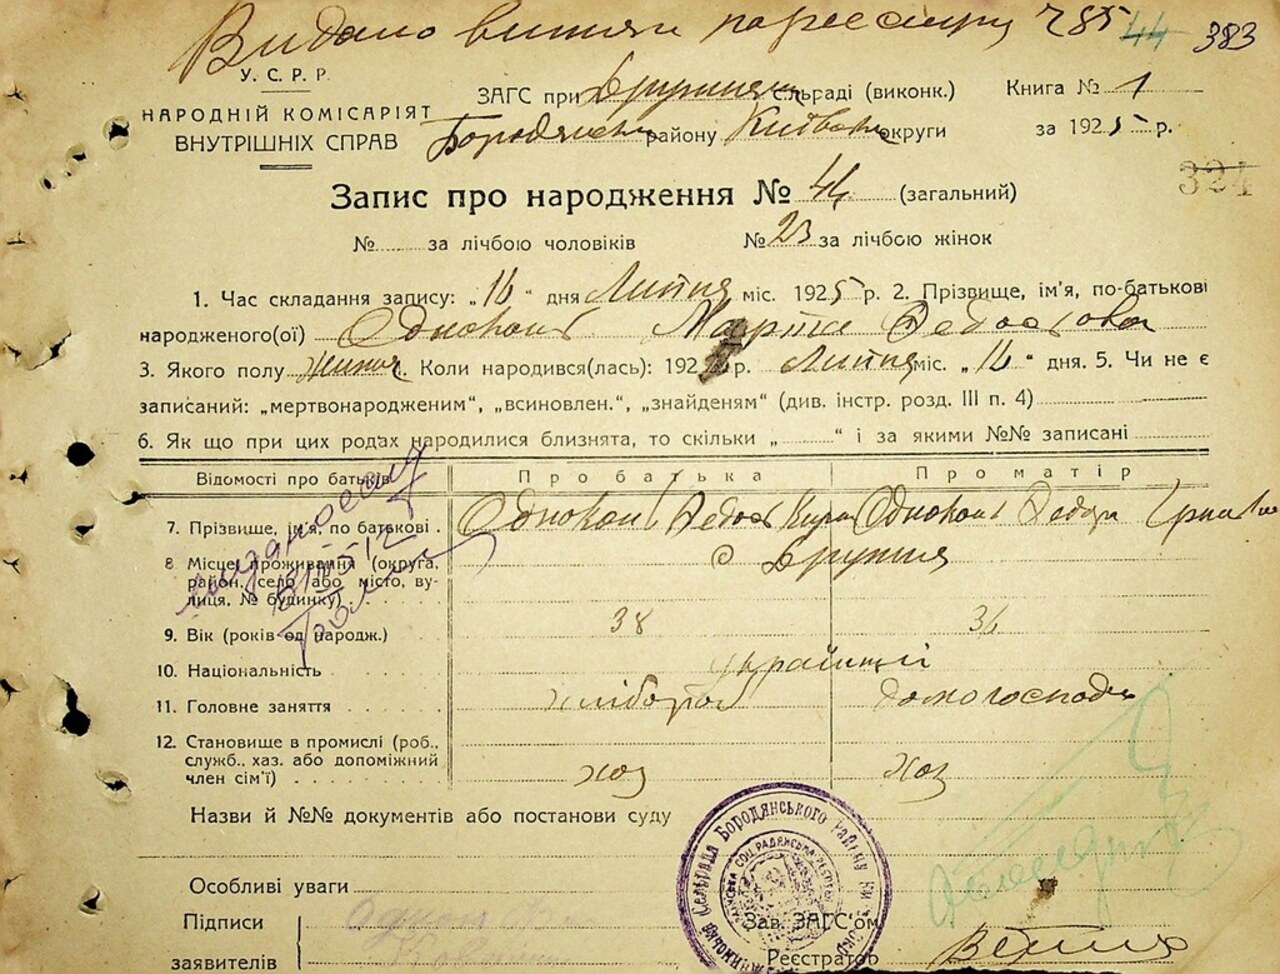 Видано витяги по реєстру 785 44 383
У. С. Р. Р.
НАРОДНІЙ КОМІСАРІЯТ
ВНУТРІШНІХ СПРАВ
ЗАГС при сільраді (виконк.) Книга № 1
Бородянськ району Київськ округи за 1925 р.
324
Запис про народження № 44 (загальний)
№ за лічбою чоловіків № 23 за лічбою жінок
1. Час складання запису: „16“ дня Липня міс. 1925 р. 2. Прізвище, ім'я, по-батькові
народженого(ої) Однокон Марта Федосіова
3. Якого полу Жиноч. Коли народився(лась): 192 р. Липня міс. „16“ дня. 5. Чи не є
записаний: „мертвонародженим“, „всиновлен.“, „знайденям“ (див. інстр. розд. III п. 4)
6. Як що при цих родах народилися близнята, то скільки „ “ і за якими №№ записані
Відомості про батьків Про батька Про матір
7. Прізвище, ім'я, по батькові Однокон Федос Однокон Федора
8 Місце проживання (округа, с Дружня
район, село або місто, ву-
лиця, № будинку)
9. Вік (років од народж.) 38 36
10. Національність
11. Головне заняття хлібороб домогосподь
12. Становище в промислі (роб.,
служб., хаз. або допоміжний
член сім'ї) хаз хаз
Назви й №№ документів або постанови суду
Особливі уваги
Підписи
заявителів
Зав. ЗАГС'ом
Реєстратор